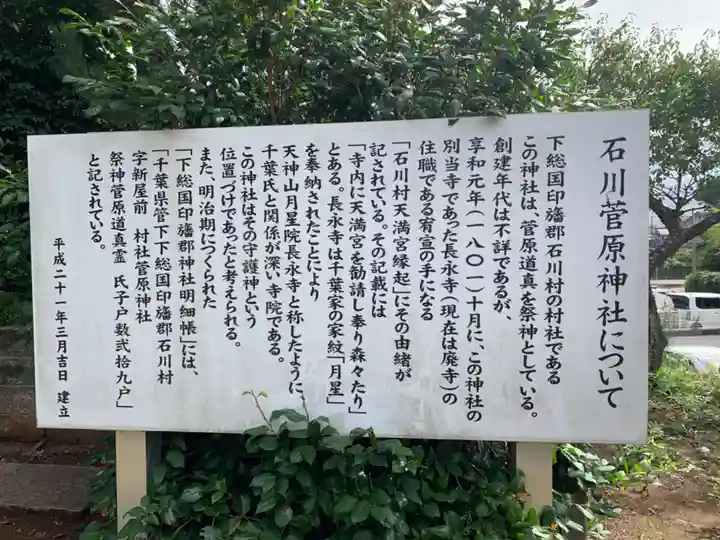 石川菅原神社について
下総国印旛郡石川村の村社である
この神社は、菅原道真を祭神としている。
創建年代は不詳であるが、
享和元年(一八〇一)十月に、この神社の
別当寺であった長永寺(現在は廃寺)の
住職である宥宣の手になる
「石川村天満宮縁起」にその由緒が
記されている。その記載には
「寺内に天満宮を勧請し奉り森々たり」
とある。長永寺は千葉家の家紋「月星」
を奉納されたことにより
天神山月星院長永寺と称したように
千葉氏と関係が深い寺院である。
この神社はその守護神という
位置づけであったと考えられる。
また、明治期につくられた
「下総国印旛郡神社明細帳」には、
「千葉県管下下総国印旛郡石川村
字新屋前 村社菅原神社
祭神菅原道真霊 氏子戸数弐拾九戸」
と記されている。
平成二十一年三月吉日 建立